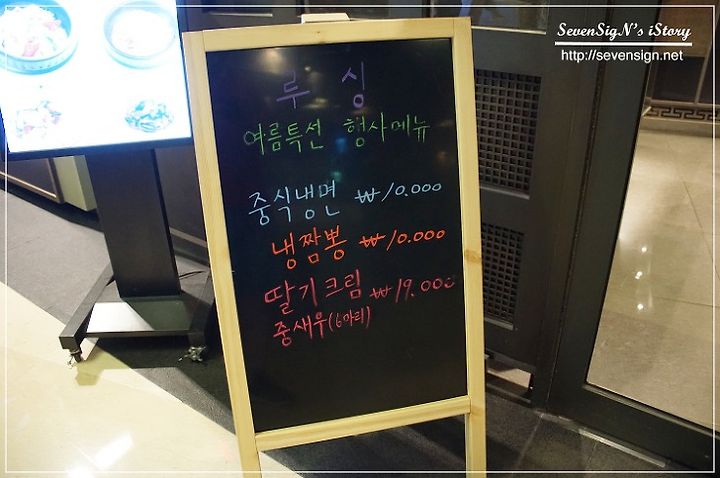 SevenSigN's iStory
http://sevensign.net
루싱
여름특선 행사메뉴
중식냉면 ₩10.000
냉짬뽕 ₩10.000
딸기크림 ₩19.000
중새우(6마리)